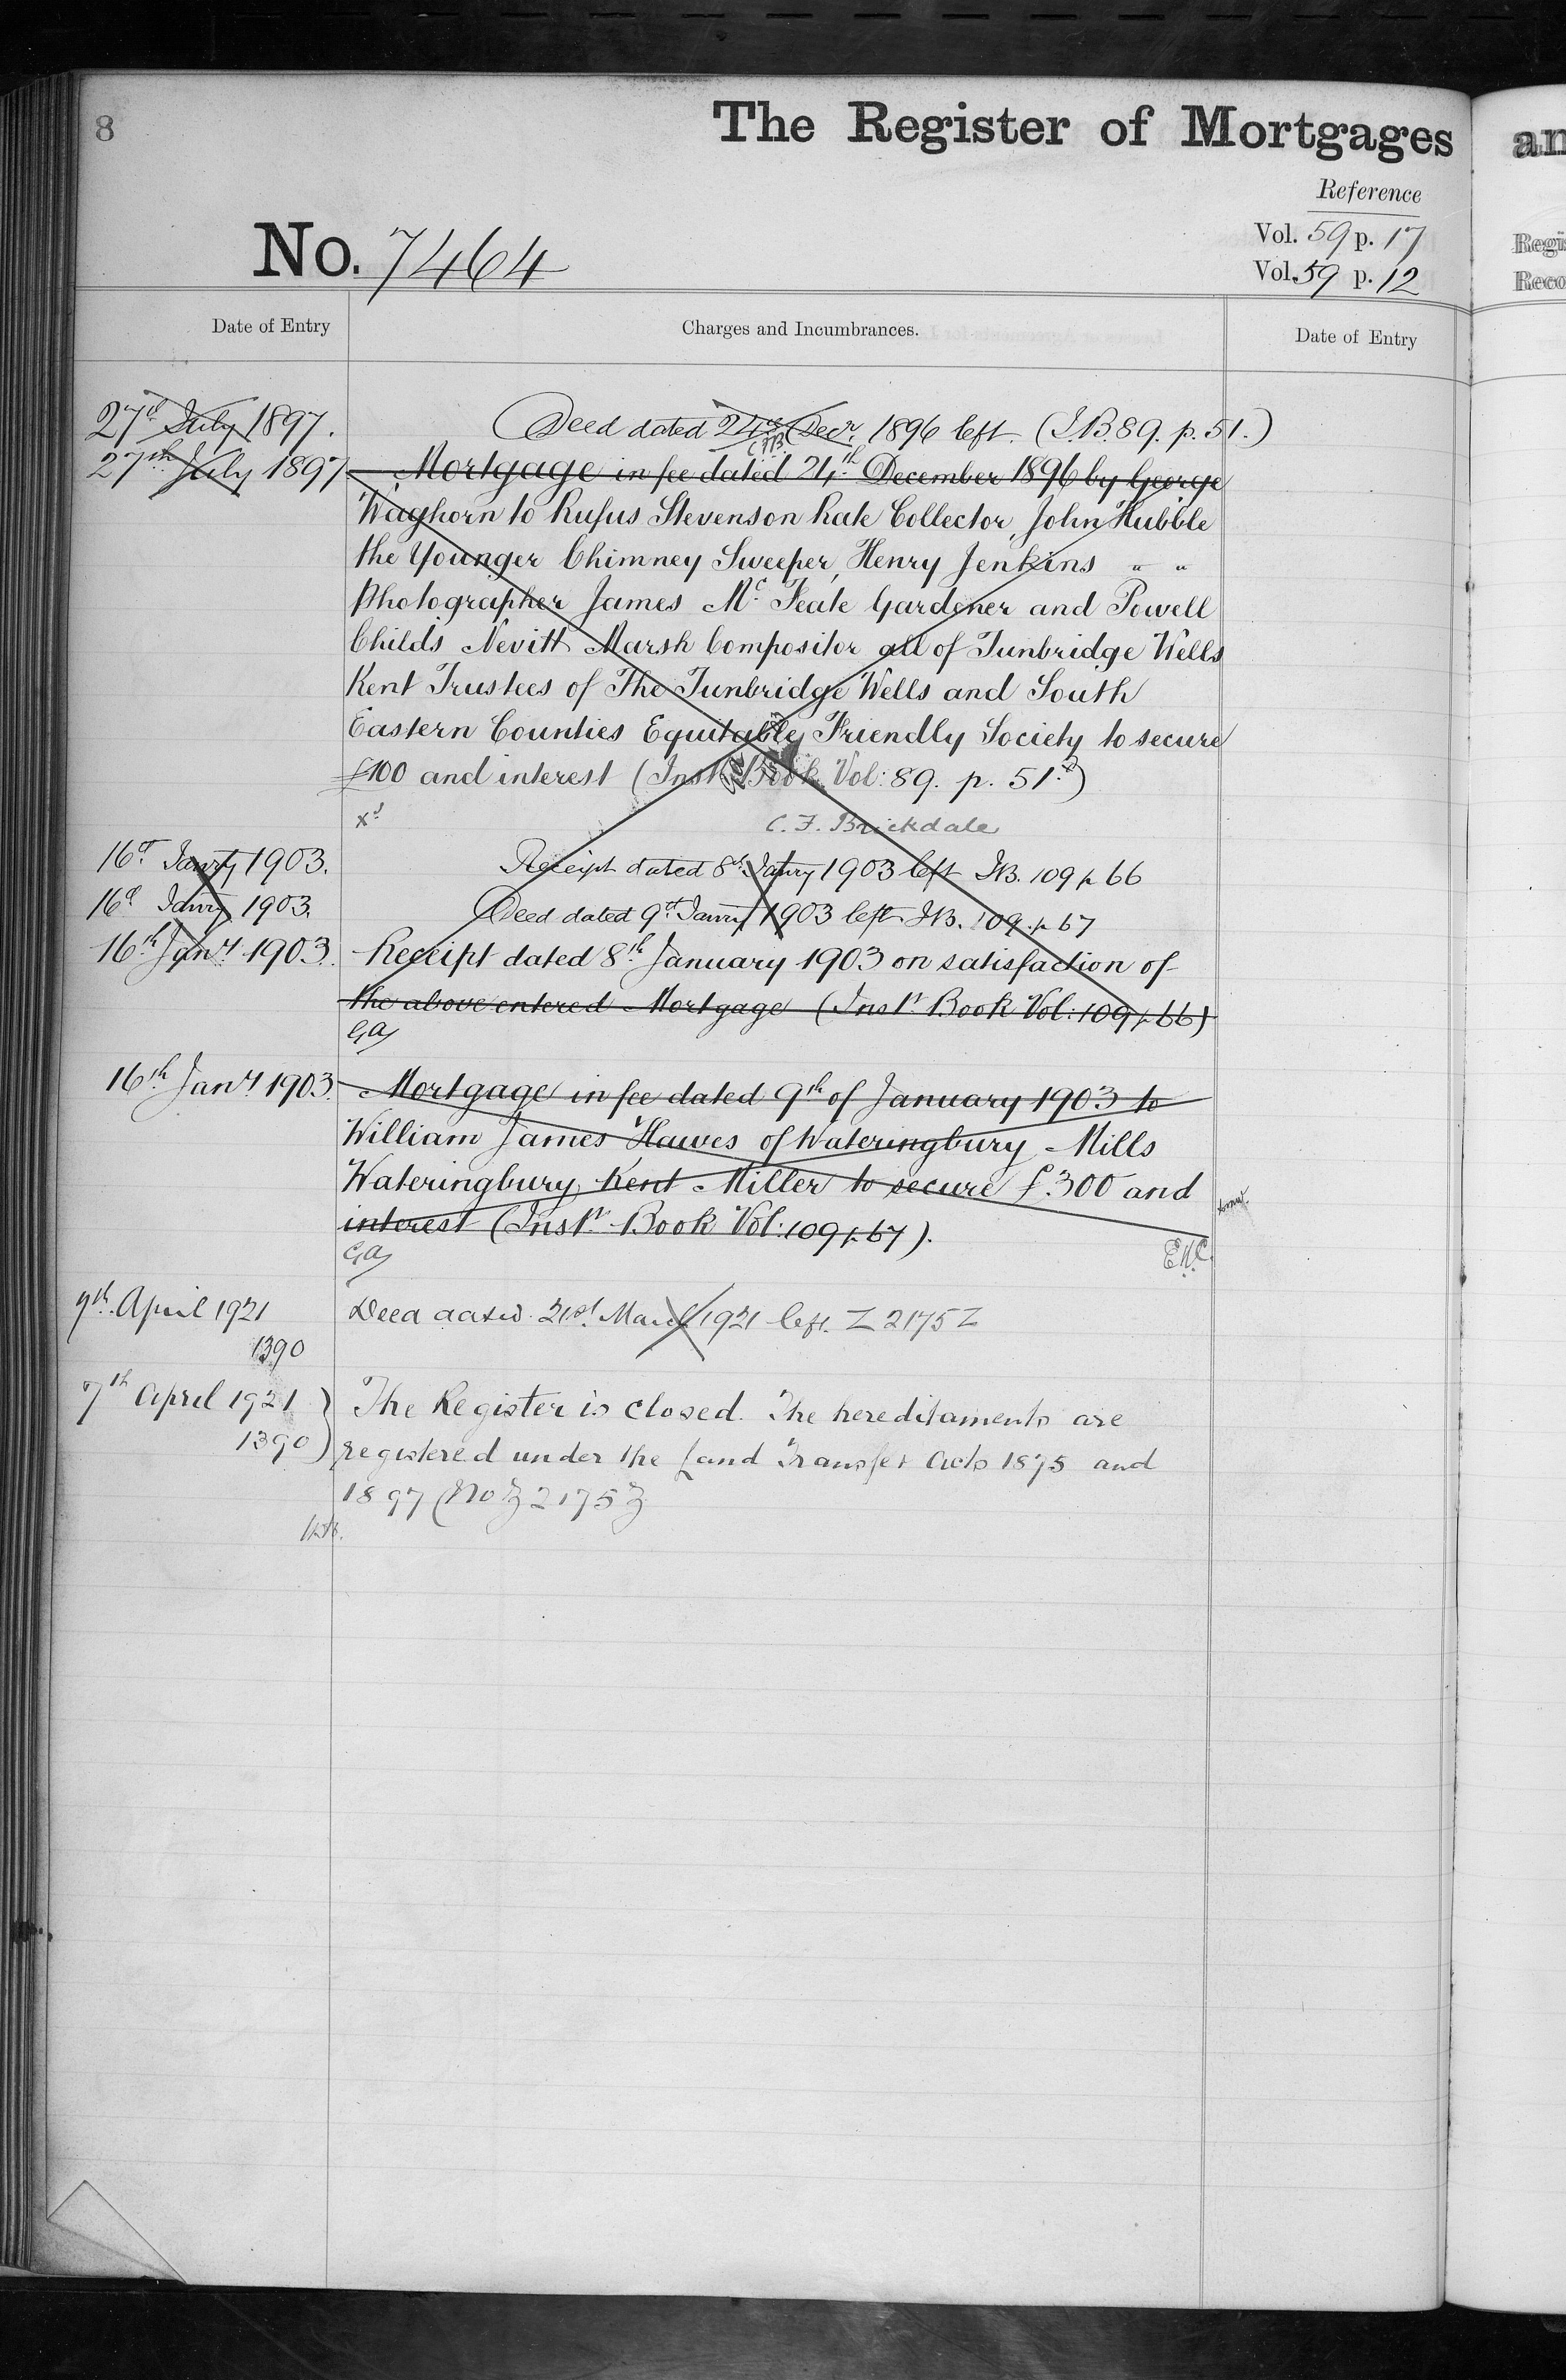 8
The Register of Mortgages
an
Reference
No. 7464
Vol. 59 p. 17
Vol. 59 p. 12
Regis
Reco
Date of Entry
Charges and Incumbrances.
Date of Entry
27th July 1897. Deed dated 24th Decr. 1896 left. (I.B. 89. p. 51.)
C.F.B.
27th July 1897 Mortgage in fee dated 24th December 1896 by George
Waghorn to Rufus Stevenson Rate Collector, John Hubble
the Younger Chimney Sweeper, Henry Jenkins " "
Photographer James Mc Feate Gardener and Powell
Childs Nevitt Marsh Compositor all of Tunbridge Wells
Kent Trustees of The Tunbridge Wells and South
Eastern Counties Equitable Friendly Society to secure
£100 and interest (Inst. Book Vol: 89. p. 51.)
xd
C. F. Brickdale
16th Janry 1903. Receipt dated 8th Janry 1903 left I.B. 109 p 66
16th Janry 1903. Deed dated 9th Janry 1903 left I.B. 109 p 67
16th Jany 1903. Receipt dated 8th January 1903 on satisfaction of
the above entered Mortgage (Inst. Book Vol: 109 p 66)
GA
16th Jany 1903. Mortgage in fee dated 9th of January 1903 to
William James Hawes of Wateringbury Mills
Wateringbury Kent Miller to secure £300 and
interest (Inst. Book Vol: 109 p 67).
GA
7th April 1921 Deed dated 21st March 1921 left Z 2175 Z
1390
7th April 1921 The Register is closed. The hereditaments are
1390 registered under the Land Transfer Acts 1875 and
1897 (No Z 2175 Z